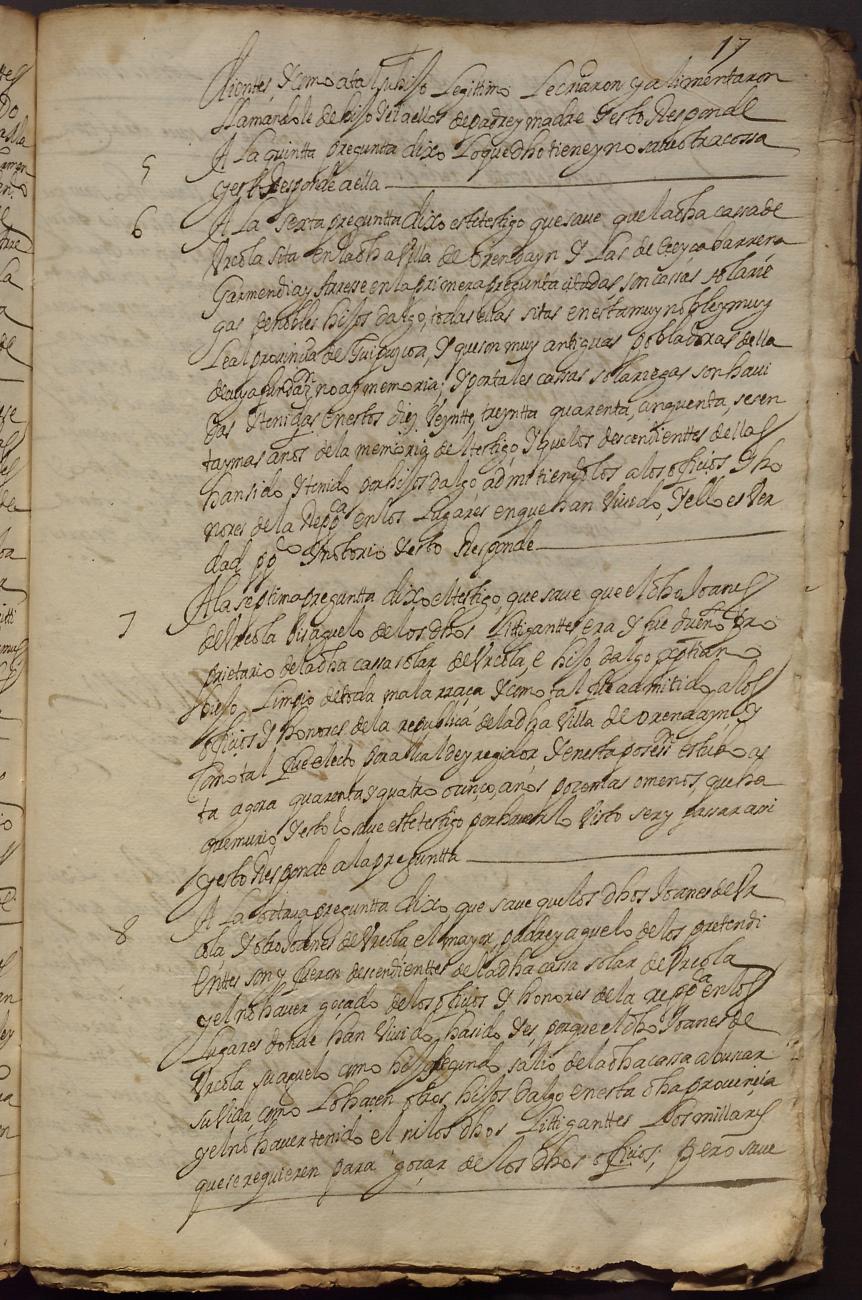 17
lientes, y como a tal su hijo Legittimo Le criaron y alimentaron
llamandole de hijo y el a ellos de padre y madre y esto Responde
5 A La quintta pregunta dixo Lo que dho tiene y no save otra cossa
y esto Responde a ella
6 A La sexta preguntta dixo este testigo que save que la dha cassa de
Vrcola sita en la dha Villa de Orendayn y Las de
Garmendia y en la primera pregunta citadas son cassas solarie
gas de nobles hijos dalgo, todas ellas sitas en esta muy noble y muy
Leal provincia de Guipuzcoa, y que son muy antiguas pobladoras della
de cuya fundazon no ay memoria; y por tales cassas solariegas son havi
das y tenidas en estos diez, veynte, treyntta quarenta, cinquenta, sesen
ta y mas años de la memoria del testigo, y que los descendienttes dellas
han sido y tenido por hijos dalgo, admitiendolos a los officios y ho
nores de la Reppca en los Lugares en que han Vivido, y ello es Ver
dad ppco y notorio y esto Responde
7 A la septima preguntta dixo el testigo, que save que el dho Joanes
de Vrcola Visaguelo de los dhos Littiganttes era y fue dueño pro
prietario de la dha cassa solar de Vrcola, e hijo dalgo xptiano
Viejo Limpio de toda mala rraça y como tal fue admitido a los
officios y honores de la republica de la dha Villa de Orendayn, y
como tal fue electo por alcalde y regidor, y en esta posesn estubo as
ta agora quarenta y quatro o cinco, años poco mas o menos, que ha
que murio, y esto lo save este testigo por haverlo Visto ser y passar assi
y esto Responde a la preguntta
8 A La octava preguntta dixo que save que los dhos Joanes de Vr
cola y otro Joanes de Vrcola el mayor, padre y aguelo de los pretendi
enttes son y fueron descendienttes de la dha cassa solar de Vrcola
y el no haver goçado de los officios y honores de la reppca en los
Lugares donde han Vivido, ha sido y es porque el dho Joanes de
Vrcola su aguelo como hijo segundo salio de la dha cassa a buscar
su Vida como Lo haçen otros hijos dalgo en esta dha provincia
y el no haver tenido el ni los dhos Littiganttes Los millares
que se requieren para goçar de los dhos officios; Pero save